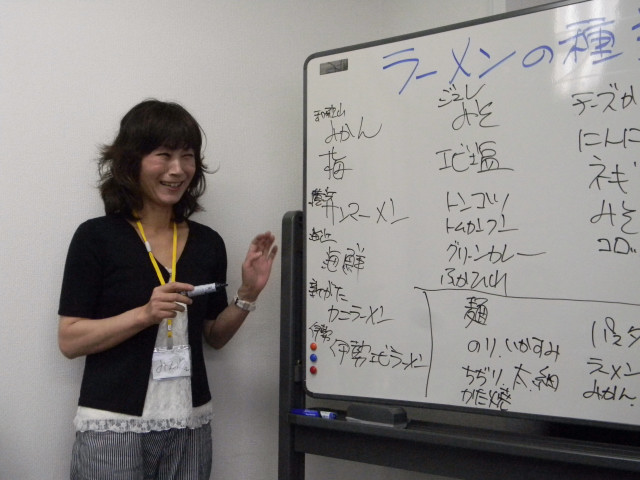 ラーメンの種
和歌山
みかん
梅
サンスーメン
海上
海鮮
カニラーメン
伊勢
伊勢エビラーメン
ジュレ
みそ
エビ塩
トンコツ
トムカフー
グリーンカレー
ふかひれ
チーズか
にんに
ネギ
みそ
コロ
麺
のり、いかすみ
ちぢり、太、細
かた焼
パスタ
ラーメン
みかん、